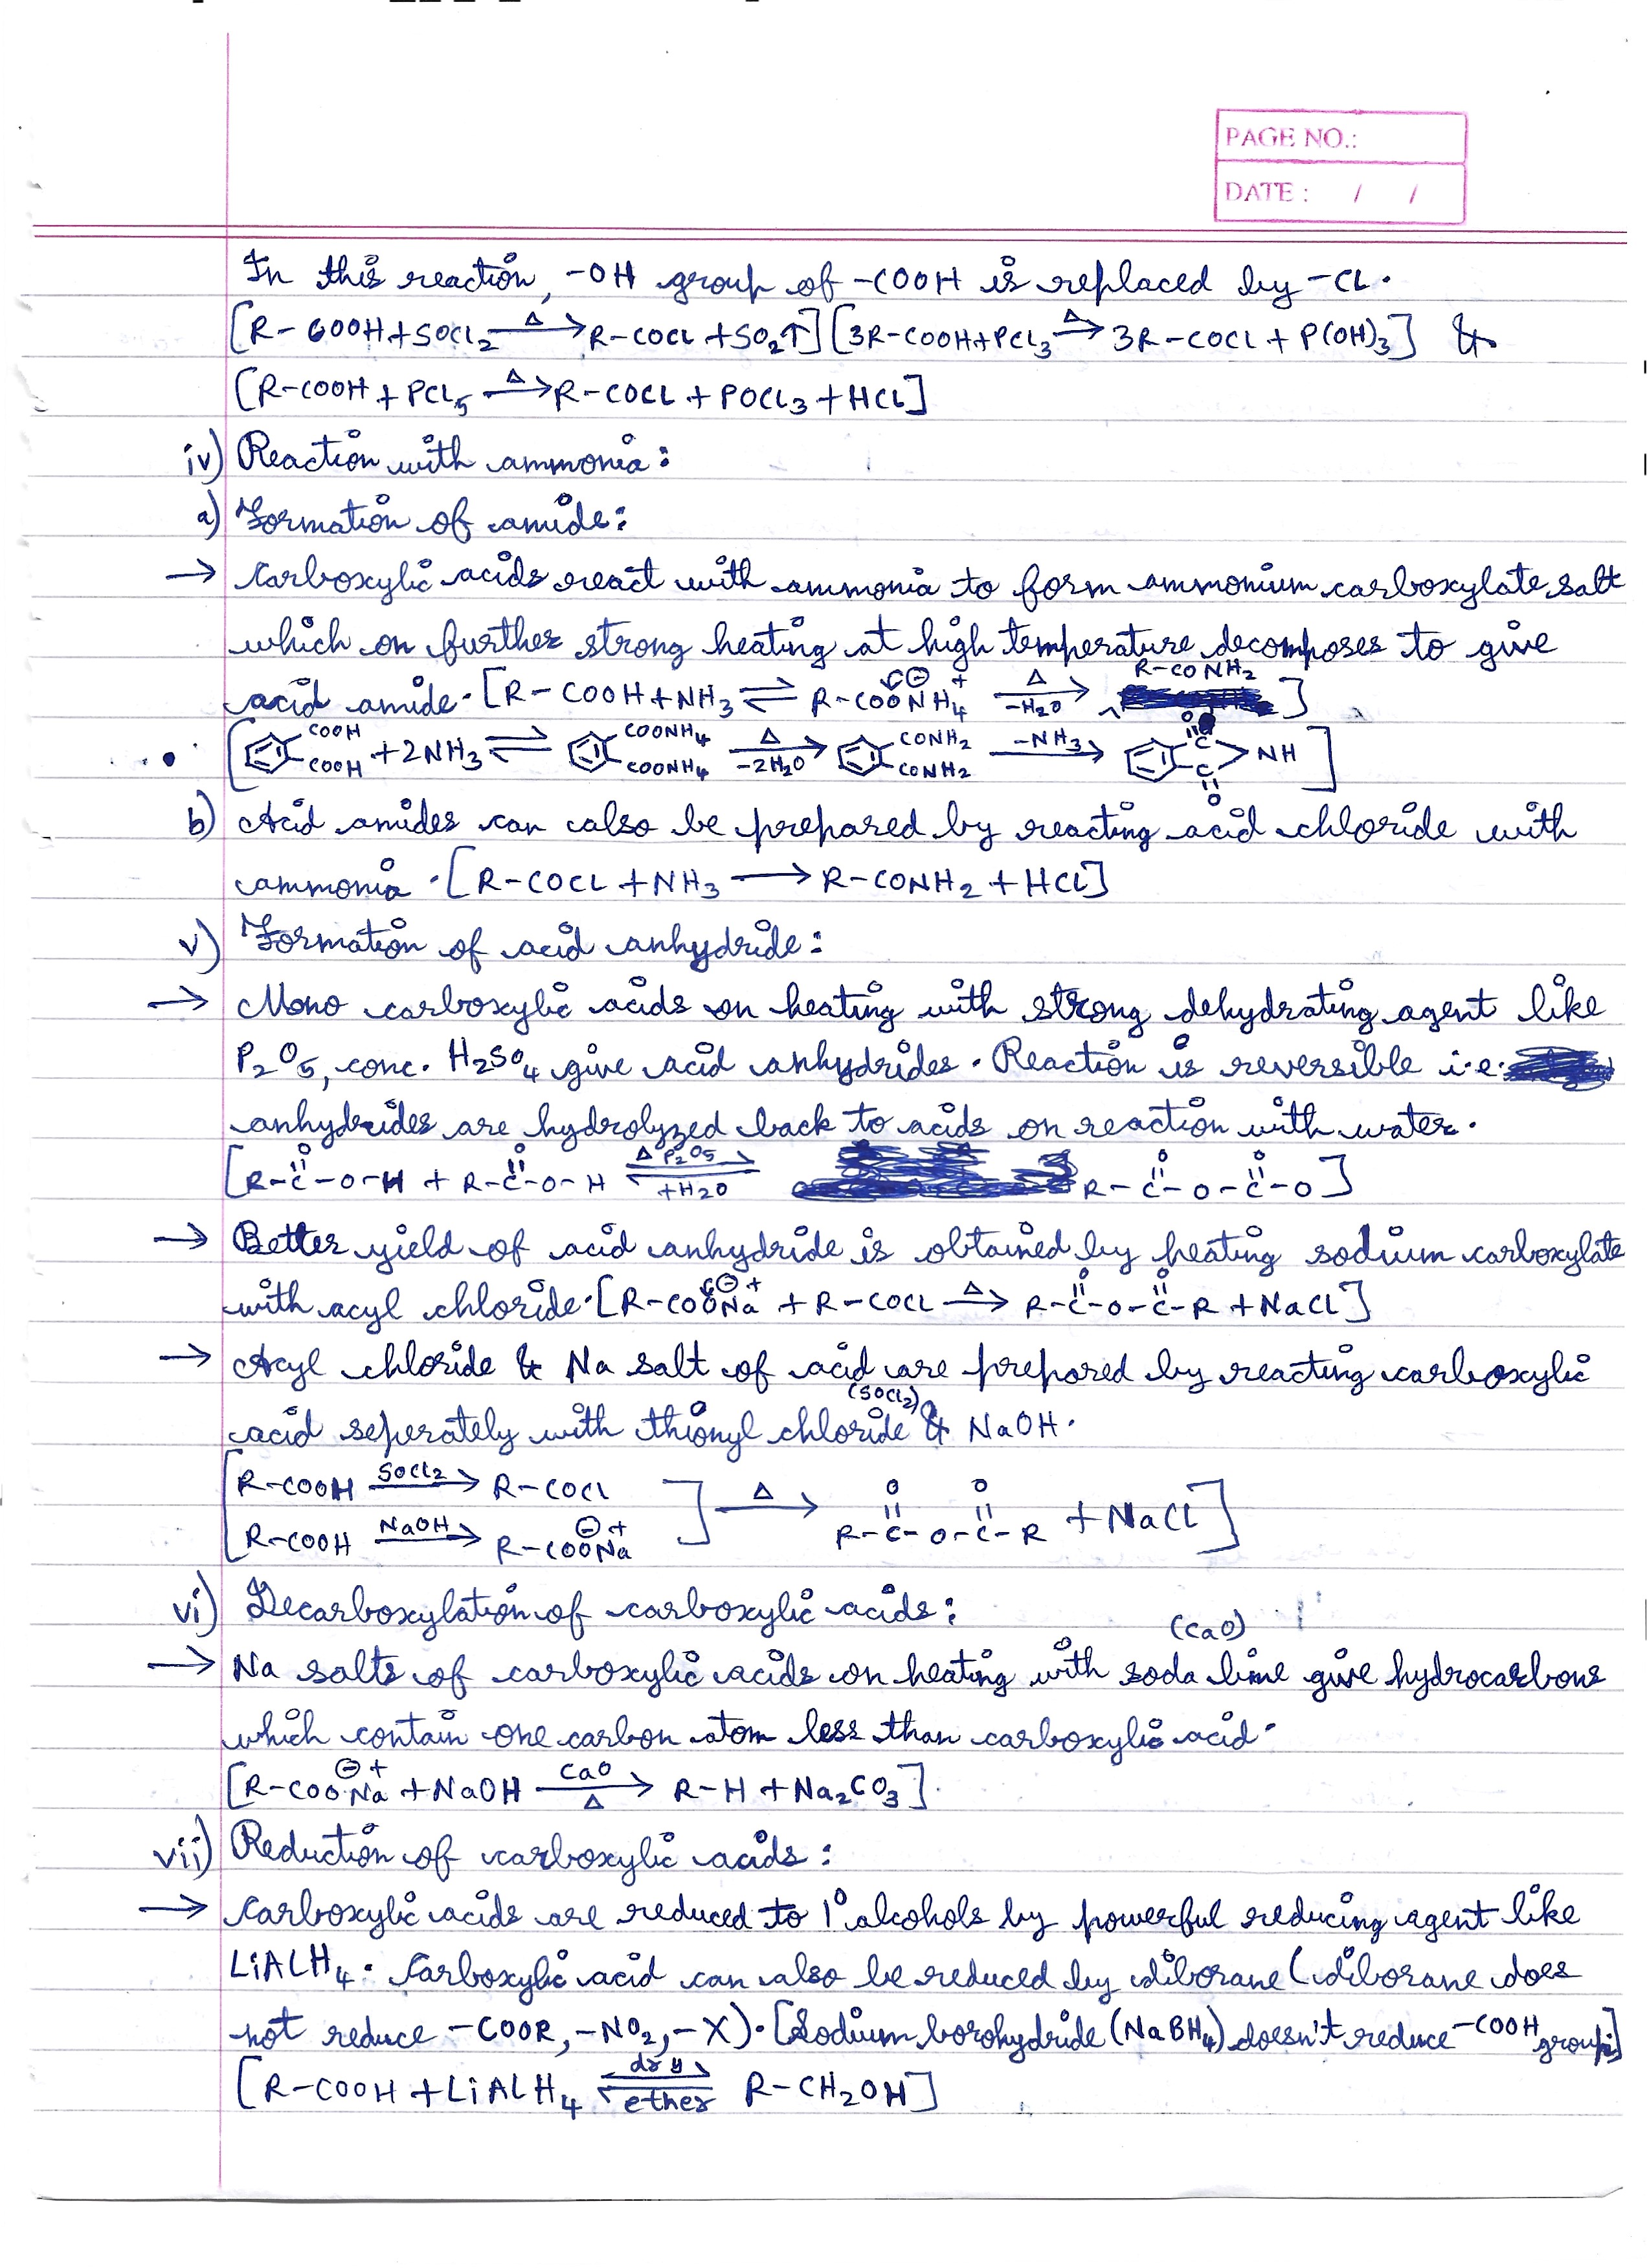 PAGE NO.:
DATE : / /
In this reaction, -OH group of -COOH is replaced by -Cl.
[R-COOH+SOCl2 —Δ→ R-COCl+SO2↑] [3R-COOH+PCl3 —Δ→ 3R-COCl+P(OH)3] &
[R-COOH+PCl5 —Δ→ R-COCl+POCl3+HCl]
iv) Reaction with ammonia:
a) Formation of amide:
→ Carboxylic acids react with ammonia to form ammonium carboxylate salt
which on further strong heating at high temperature decomposes to give
acid amide. [R-COOH+NH3 ⇌ R-COO⊖NH4+ —Δ/-H2O→ R-CONH2]
[COOH COOH +2NH3 ⇌ COONH4 COONH4 —Δ/-2H2O→ CONH2 CONH2 —-NH3→ O=C C=O >NH]
b) Acid amides can also be prepared by reacting acid chloride with
ammonia. [R-COCl+NH3 → R-CONH2+HCl]
v) Formation of acid anhydride:
→ Mono carboxylic acids on heating with strong dehydrating agent like
P2O5, conc. H2SO4 give acid anhydrides. Reaction is reversible i.e.
anhydrides are hydrolyzed back to acids on reaction with water.
[R-C(=O)-O-H + R-C(=O)-O-H ⇌ Δ P2O5/+H2O R-C(=O)-O-C(=O)-O]
→ Better yield of acid anhydride is obtained by heating sodium carboxylate
with acyl chloride. [R-COO⊖Na+ + R-COCl —Δ→ R-C(=O)-O-C(=O)-R+NaCl]
→ Acyl chloride & Na salt of acid are prepared by reacting carboxylic
acid seperately with thionyl chloride (SOCl2) & NaOH.
[R-COOH —SOCl2→ R-COCl
R-COOH —NaOH→ R-COO⊖Na+ ] —Δ→ R-C(=O)-O-C(=O)-R +NaCl]
vi) Decarboxylation of carboxylic acids:
→ Na salts of carboxylic acids on heating with soda lime (CaO) give hydrocarbons
which contain one carbon atom less than carboxylic acid.
[R-COO⊖Na+ +NaOH —CaO/Δ→ R-H+Na2CO3].
vii) Reduction of carboxylic acids:
→ Carboxylic acids are reduced to 1° alcohols by powerful reducing agent like
LiAlH4. Carboxylic acid can also be reduced by diborane (diborane does
not reduce -COOR, -NO2, -X). [Sodium borohydride (NaBH4) doesn't reduce -COOH group]
[R-COOH+LiAlH4 ⇌ dry/ether R-CH2OH]